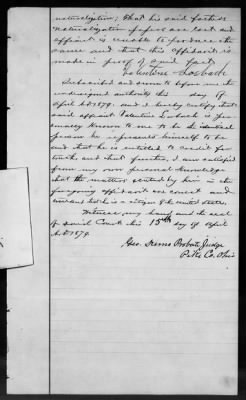 naturalization; that his said father's
naturalization papers are lost and
affiant is unable to produce the
same and that this affidavit is
made in proof of said fact
Valentine Losbach
Subscribed and sworn to before me the
undersigned authority this day of
April A.D. 1879. and I hereby certify that
said affiant Valentine Losbach is per-
sonally known to me to be the identical
person he represents himself to be
and that he is entitled to credit for
truth and that further, I am satisfied
from my own personal knowledge
that the matters stated by him in the
foregoing affidavit are correct and
and that he is a citizen of the united states.
Witness my hand and the seal
of said Court this 15th day of April
A.D. 1879.
Geo. Probate Judge
Pike Co. Ohio